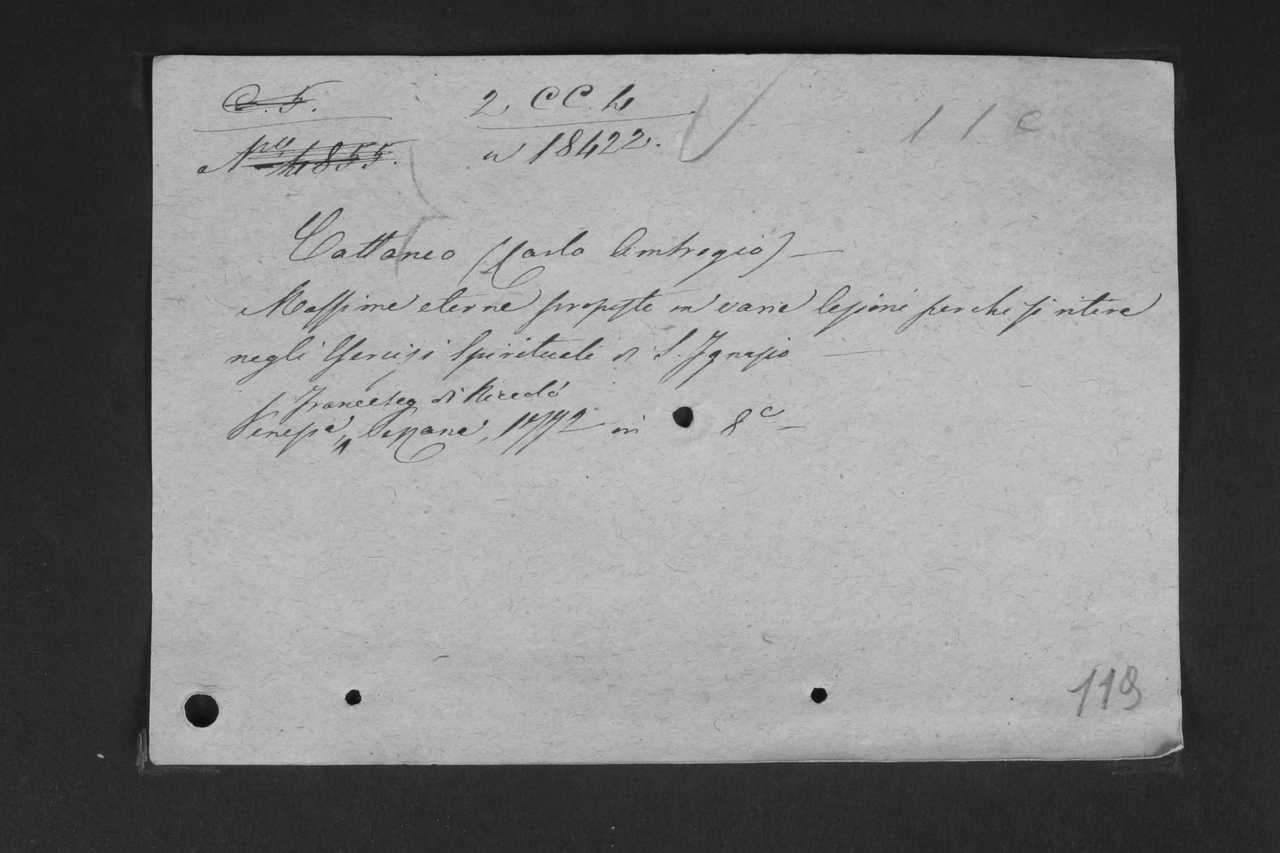 C. 5.
2. CC. 4
11 c
Nro 4855.
n 18422.
Cattaneo (Carlo Ambrogio) —
Massime eterne proposte in varie lezioni per chi si ritira
negli Esercizi Spirituali di S. Ignazio —
Francesco di Niccolò
Venezia, Pezzana, 1772 in 8º —
119